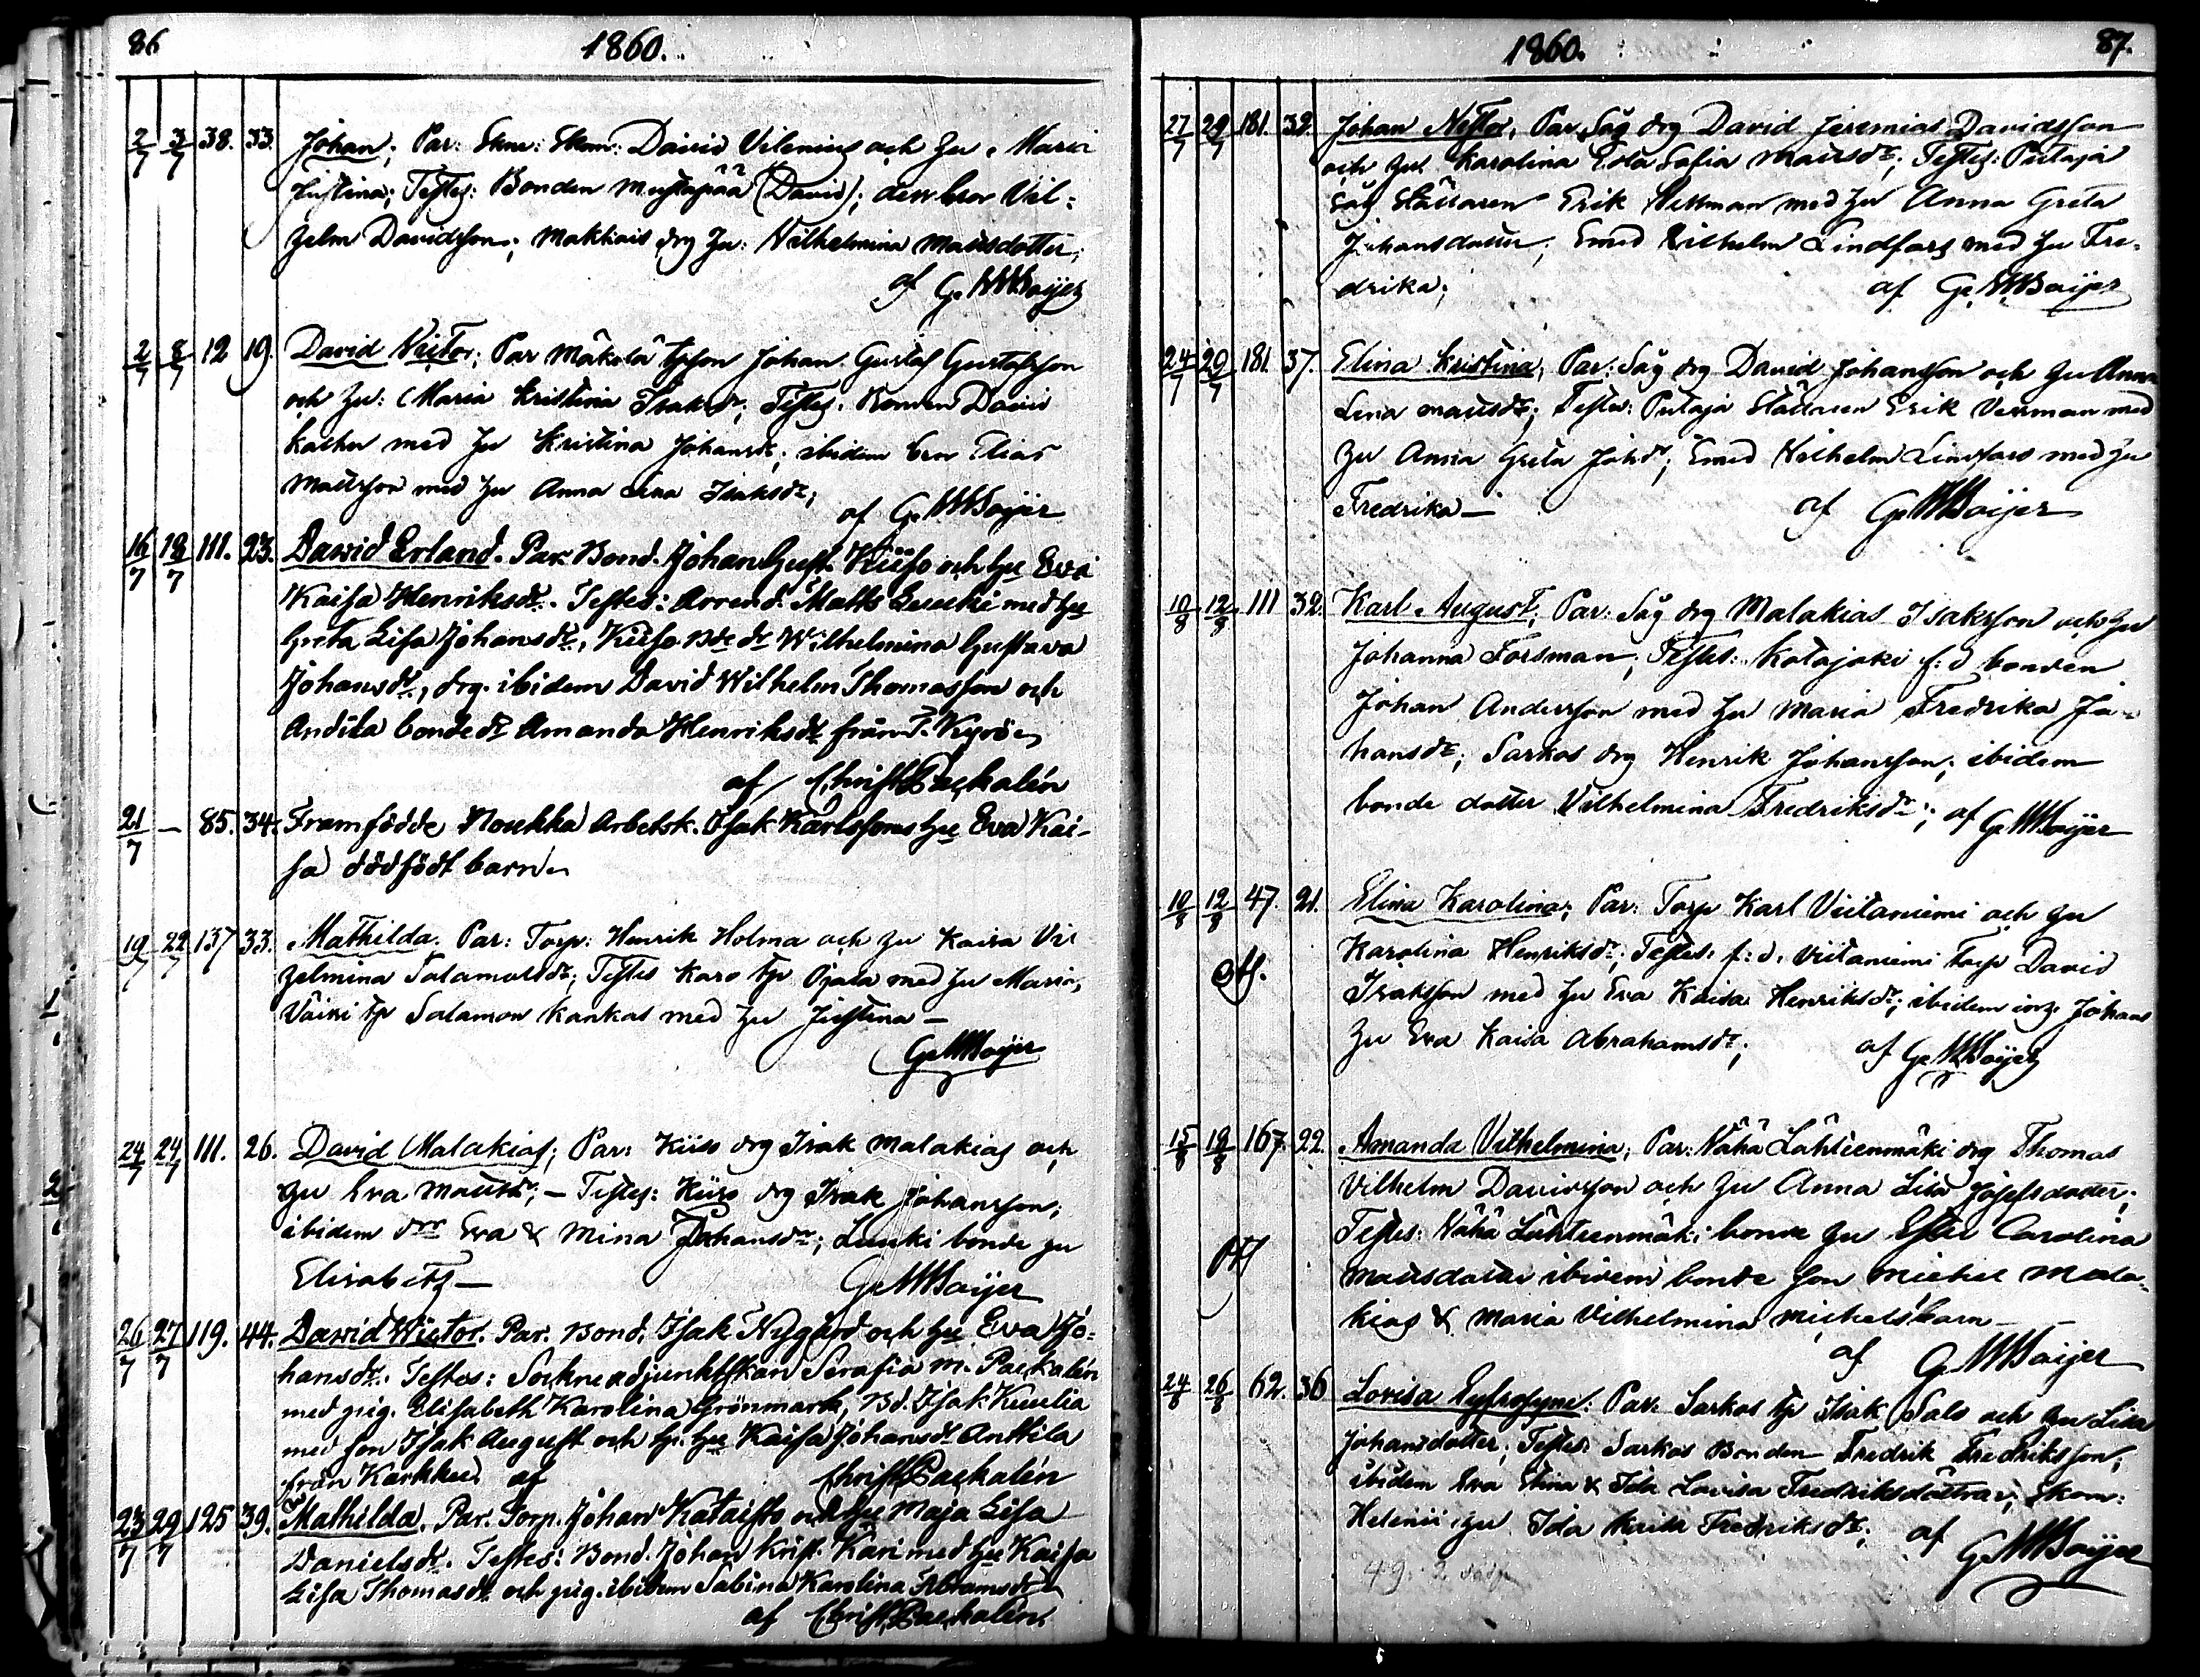 86 1860.
2/7 3/7 38. 33. Johan; Par: Skom: David Vilenius och hu Maria
Justina; Testes: Bonden Mustapää (David); dess bror Vil-
helm Davidsson; Makkais drg hu: Vilhelmina Mattsdotter;
af G. W. Boijer
2/7 8/7 12 19. David Victor; Par Mäkelä tpson Johan Gustaf Gustafsson
och hu: Maria Kristina Isaksdr; Testes: Bonden David
med hu Kristina Johansdr; ibidem bror Elias
Mattsson med hu Anna Lena Isaksdr;
af G. W. Boijer
16/7 18/7 111. 23. David Erland. Par. Bond. Johan Gust. Kiiso och hu Eva
Kaisa Henriksdr. Testes: Arrend. Matts Leuki med hu
Greta Lisa Johansdr, Kiiso Bde dr Wilhelmina Gustava
Johansdr, drg. ibidem David Wilhelm Thomasson och
Andila bonde dr Amanda Henriksdr från T. Kyrö
af Christ. Paekalén
21/7 — 85. 34. Framfödde Noukka Arbetsk. Isak Karlssons hu Eva Kai-
sa dödfödt barn
19/7 22/7 137 33. Mathilda. Par: Torp: Henrik Holma och hu Kaisa Vil
helmina Salamonsdr; Testes Karo tp Ojala med hu Maria,
tp Salamon Kankas med hu Justina —
G. W. Boijer
24/7 24/7 111. 26. David Malakias; Par: Kiiso drg Isak Malakias och
hu Eva Mattsdr; — Testes: Kiiso drg Isak Johansson;
ibidem drr Eva & Mina Johansdr; Leuki bonde hu
Elisabeth —
G. W. Boijer
26/7 27/7 119. 44. David Wictor. Par. Bond. Isak Nygård och hu Eva Jo-
hansdr. Testes: Sockneadjunktskan Serafia M. Paekalén
med pig. Elisabeth Karolina Grönmark, Bd. Isak Kuulia
med son Isak August och tp. hu Kaisa Johansdr Anttila
från Karkku. af Christ. Paekalén
23/7 29/7 125 39. Mathilda. Par. Torp. Johan Kataisto och hu Maja Lisa
Danielsdr. Testes: Bond. Johan Krist. Kari med hu Kaisa
Lisa Thomasdr och pig. ibidem Sabina Karolina Abramsdr
af Christ. Paekalén.
1860. 87.
27/7 29/7 181. 38. Johan Nestor, Par Såg drg David Jeremias Davidsson
och hu Karolina Eva Sofia Mattsdr; Testes: Putaja
Såg Ställaren Erik Vettman med hu Anna Greta
Johansdotter; Smed Vilhelm Lindfors med hu Fre-
drika;
af G. W. Boijer
24/7 29/7 181. 37. Elina Kristina, Par: Såg drg David Johansson och hu Anna
Lena Mattsdr; Testes: Putaja Ställaren Erik Vettman med
hu Anna Greta Johdr; Smed Vilhelm Lindfors med hu
Fredrika — af G. W. Boijer
10/8 12/8 111 32. Karl August, Par: Såg drg Malakias Isaksson och hu
Johanna Forsman; Testes: Kotajoki f:d bonden
Johan Andersson med hu Maria Fredrika Jo-
hansdr; Sarkos drg Henrik Johansson; ibidem
bonde dotter Vilhelmina Fredriksdr; af G. W. Boijer
10/8 12/8 47. 21. Elina Karolina; Par: Torp Karl Viitaniemi och hu
Karolina Henriksdr; Testes: f:d. Viitaniemi torp David
Isaksson med hu Eva Kaisa Henriksdr; ibidem inh. Johans
hu Eva Kaisa Abrahamsdr; af G. W. Boijer
15/8 19/8 167. 22. Amanda Vilhelmina, Par: Nähä Lähteenmäki drg Thomas
Vilhelm Davidsson och hu Anna Lisa Josefsdotter;
Testes: Nähä Lähteenmäki bonde hu Ester Carolina
Mattsdotter ibidem bonde son Michel Mala-
kias & Maria Vilhelmina Michelsbarn —
af G. W. Boijer
24/8 26/8 62. 36 Lovisa Eufrosyne: Par: Sarkos tp Isak Salo och hu Lisa
Johansdotter; Testes: Sarkos Bonden Fredrik Fredriksson;
ibidem Eva Stina & Ida Lovisa Fredriksdöttrar; Skom:
Helenii hu Ida Fredriksdr; af
G. W. Boijer
49.